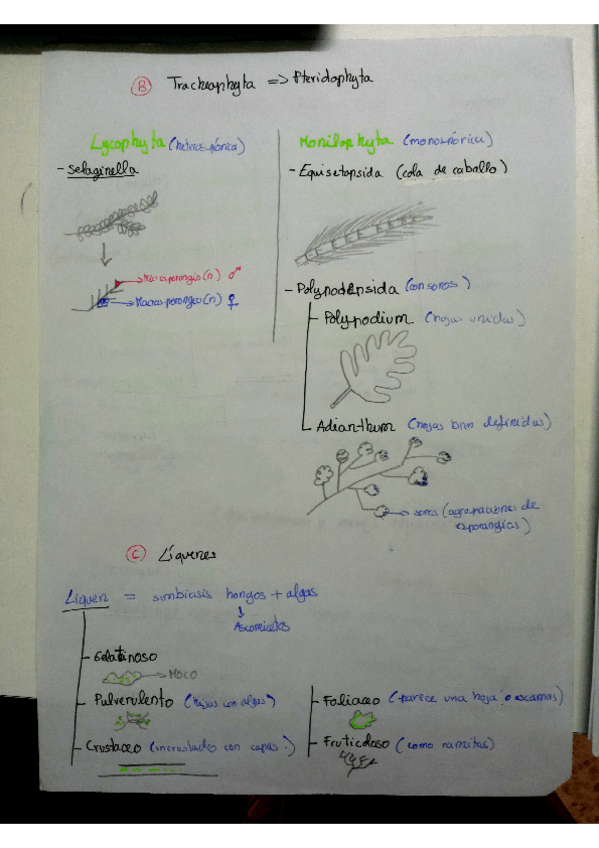 B Tracheophyta => Pteridophyta
Lycophyta (heterospórica)
- Selaginella
→ Microsporangio (n) ♂
→ Macrosporangio (n) ♀
Monilophyta (monospórica)
- Equisetopsida (cola de caballo)
- Polypodiopsida (con soros)
- Polypodium (hojas unidas)
- Adianthum (hojas bien definidas)
→ soros (agrupaciones de
esporangios)
C Líquenes
Liquen = simbiosis hongos + algas
↓
Ascomicetos
- Gelatinoso
→ MOCO
- Pulverulento (hojas con algas)
- Crustaceo (incrustados con capas.)
- Foliaceo (parece una hoja o escamas)
- Fruticuloso (como ramitas)